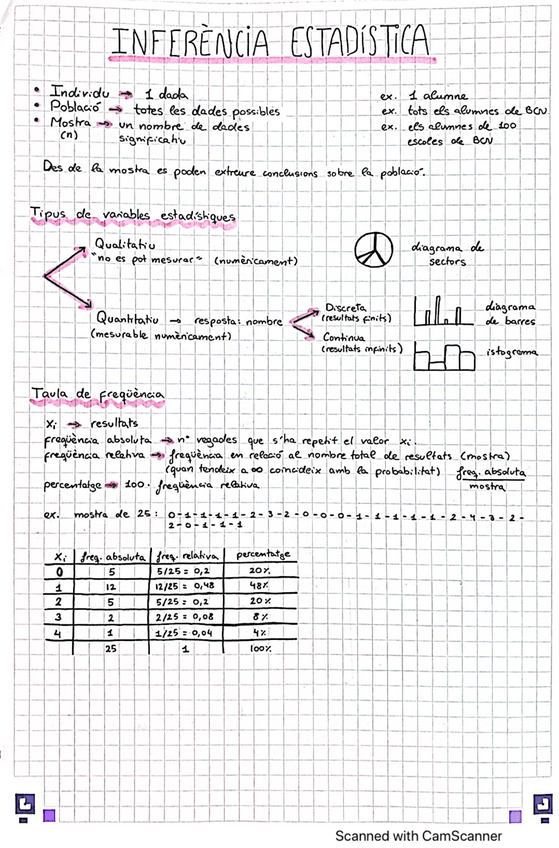 INFERÈNCIA ESTADÍSTICA
• Individu → 1 dada ex. 1 alumne
• Població → totes les dades possibles ex. tots els alumnes de BCN
• Mostra → un nombre de dades ex. els alumnes de 100
(n) significatiu escoles de BCN
Des de la mostra es poden extreure conclusions sobre la població.
Tipus de variables estadístiques
Qualitatiu
"no es pot mesurar" (numèricament)
diagrama de
sectors
Quantitatiu → resposta: nombre
(mesurable numèricament)
Discreta
(resultats finits)
diagrama
de barres
Contínua
(resultats infinits)
istograma
Taula de freqüència
Xi → resultats
freqüència absoluta → nº vegades que s'ha repetit el valor xi.
freqüència relativa → freqüència en relació al nombre total de resultats (mostra)
(quan tendeix a ∞ coincideix amb la probabilitat) freq. absoluta
mostra
percentatge → 100 · freqüència relativa
ex. mostra de 25: 0-1-1-1-1-2-3-2-0-0-0-1-1-1-1-1-1-2-4-3-2-
2-0-1-1-1
Xi freq. absoluta freq. relativa percentatge
0 5 5/25 = 0,2 20%
1 12 12/25 = 0,48 48%
2 5 5/25 = 0,2 20%
3 2 2/25 = 0,08 8%
4 1 1/25 = 0,04 4%
25 1 100%
Scanned with CamScanner